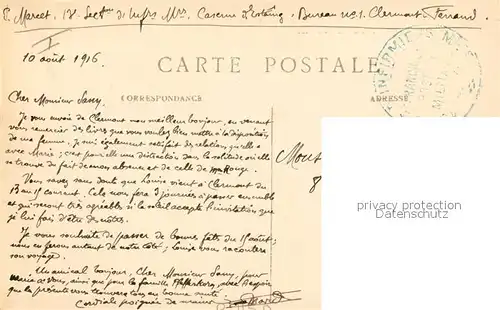 P. Marcet. 13e Section d'Infrs Mres Caserne d'Estaing. Bureau no 1. Clermont-Ferrand
I
10 août 1916
CARTE POSTALE
CORRESPONDANCE
ADRESSE
INFIRMIERS MILIT
Cher Monsieur
Je vous envoie de Clermont mon meilleur bonjour, en venant
vous remercier des livres que vous voulez bien mettre à la disposition
de ma femme. Je suis également satisfait des relations qu'elle a
avec Marie; c'est pour elle une distraction dans la solitude où elle
se trouve du fait de mon absence et de celle de Mme Rouge.
Vous savez sans doute que Louise vient à Clermont du
13 au 15 courant. Cela nous fera 3 journées à passer ensemble
et qui seront très agréables si la soleil accepte l'invitation que
je lui fais d'être des nôtres.
Je vous souhaite de passer de bonnes fêtes du 15 août;
nous en ferons autant de notre côté; Louise vous racontera
son voyage.
Un amical bonjour, Cher Monsieur pour
vous, ainsi que pour la famille avec l'espoir
que la présente vous trouvera tous en bonne santé.
Cordiale poignée de mains
Mont
8
PRIVATE WATERMARK
Datenschutz